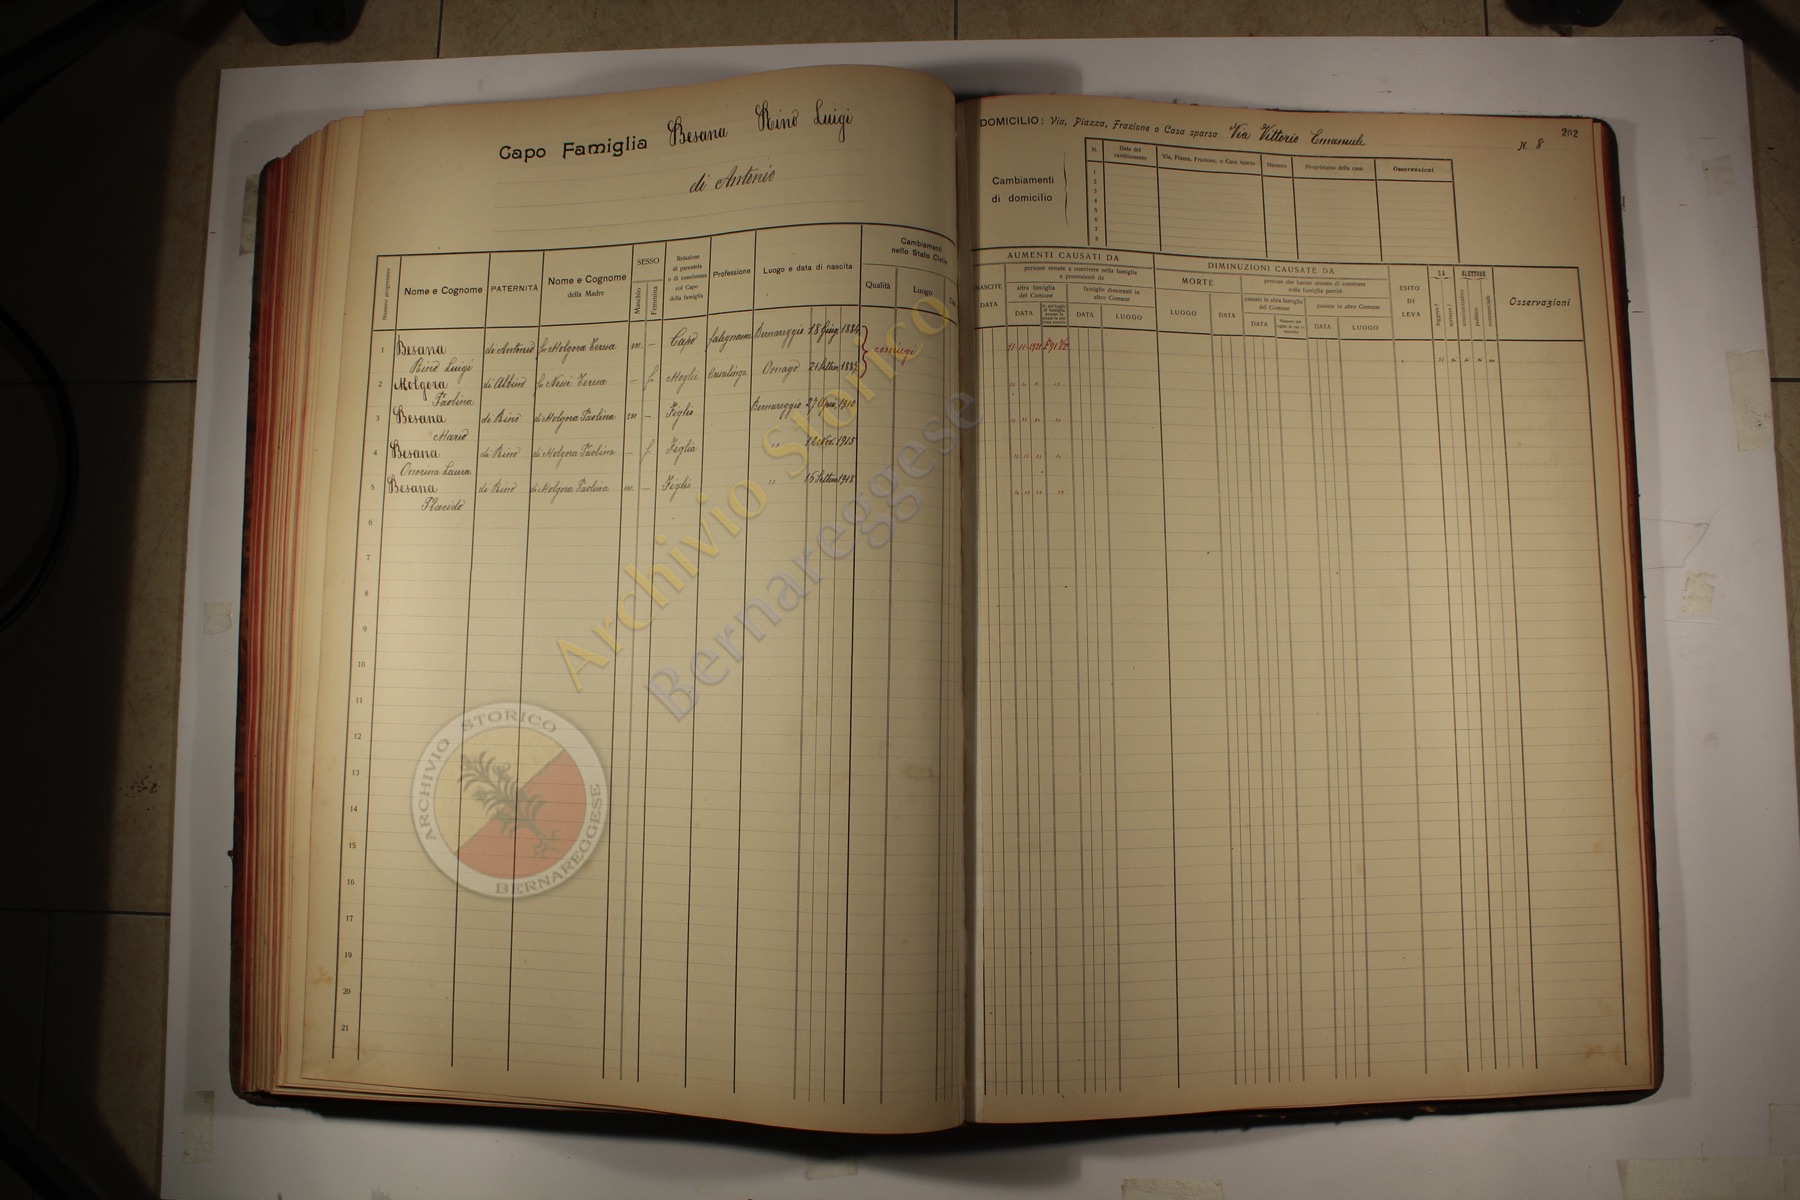 Capo Famiglia Besana Rino Luigi
di Antonio
Numero progressivo
Nome e Cognome
PATERNITÀ
Nome e Cognome
della Madre
SESSO
Maschio
Femmina
Relazione
di parentela
o di convivenza
col Capo
della famiglia
Professione
Luogo e data di nascita
Cambiamenti
nello Stato Civile
Qualità
Luogo
1 Besana di Antonio fu Molgora Teresa m. - Capo falegname Bernareggio 18 Giug. 1884
Rino Luigi
coniugi
2 Molgora di Albino fu Nessi Teresa - f. Moglie Casalinga Osnago 21 Settem. 1887
Paolina
3 Besana di Rino di Molgora Paolina m - Figlio Bernareggio 27 April. 1910
Mario
4 Besana di Rino di Molgora Paolina - f. Figlia " 12 Nov. 1915
Onorina Laura
5 Besana di Rino di Molgora Paolina m. - Figlio " 15 Settem 1918
Placido
6
7
8
9
10
11
12
13
14
15
16
17
18
19
20
21
DOMICILIO: Via, Piazza, Frazione o Casa sparsa Via Vittorio Emanuele N. 8
202
Cambiamenti
di domicilio
N.
Data del
cambiamento
Via, Piazza, Frazione, o Casa sparsa
Numero
Proprietario della casa
Osservazioni
1
2
3
4
5
6
7
8
AUMENTI CAUSATI DA
NASCITE
DATA
persone venute a convivere nella famiglia
e provenienti da
altra famiglia
del Comune
DATA
famiglie dimoranti in
altro Comune
DATA
LUOGO
DIMINUZIONI CAUSATE DA
MORTE
LUOGO
DATA
persone che hanno cessato di convivere
colla famiglia perchè
passate in altra famiglia
del Comune
DATA
passate in altro Comune
DATA
LUOGO
ESITO
DI
LEVA
SA
leggere?
scrivere?
ELETTORE
amministrativo
politico
commerciale
Osservazioni
Archivio Storico
Bernareggese
ARCHIVIO STORICO
BERNAREGGESE